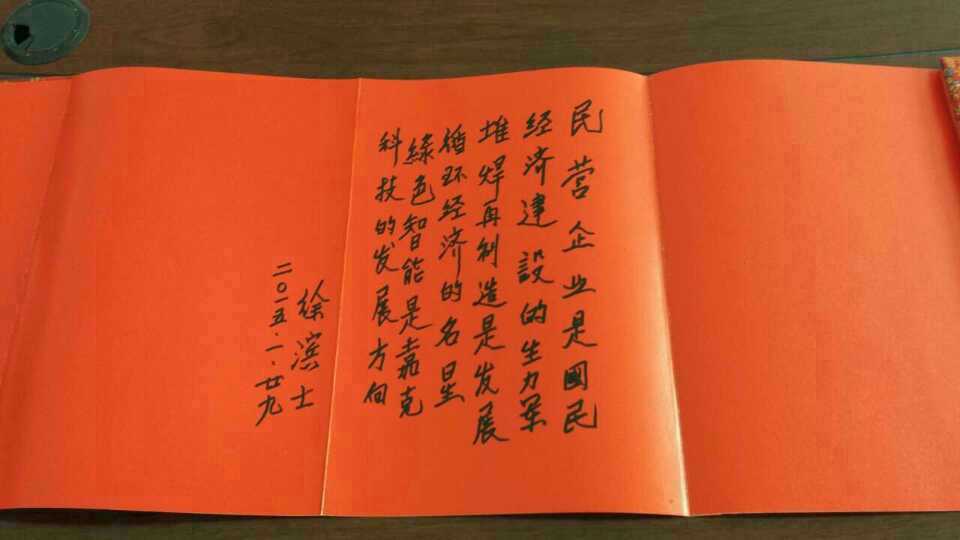 民营企业是國民
经济建設的生力军
堆焊再制造是发展
循环经济的名星
緑色智能是嘉克
科技的发展方向
徐滨士
二〇一五.一.廿九